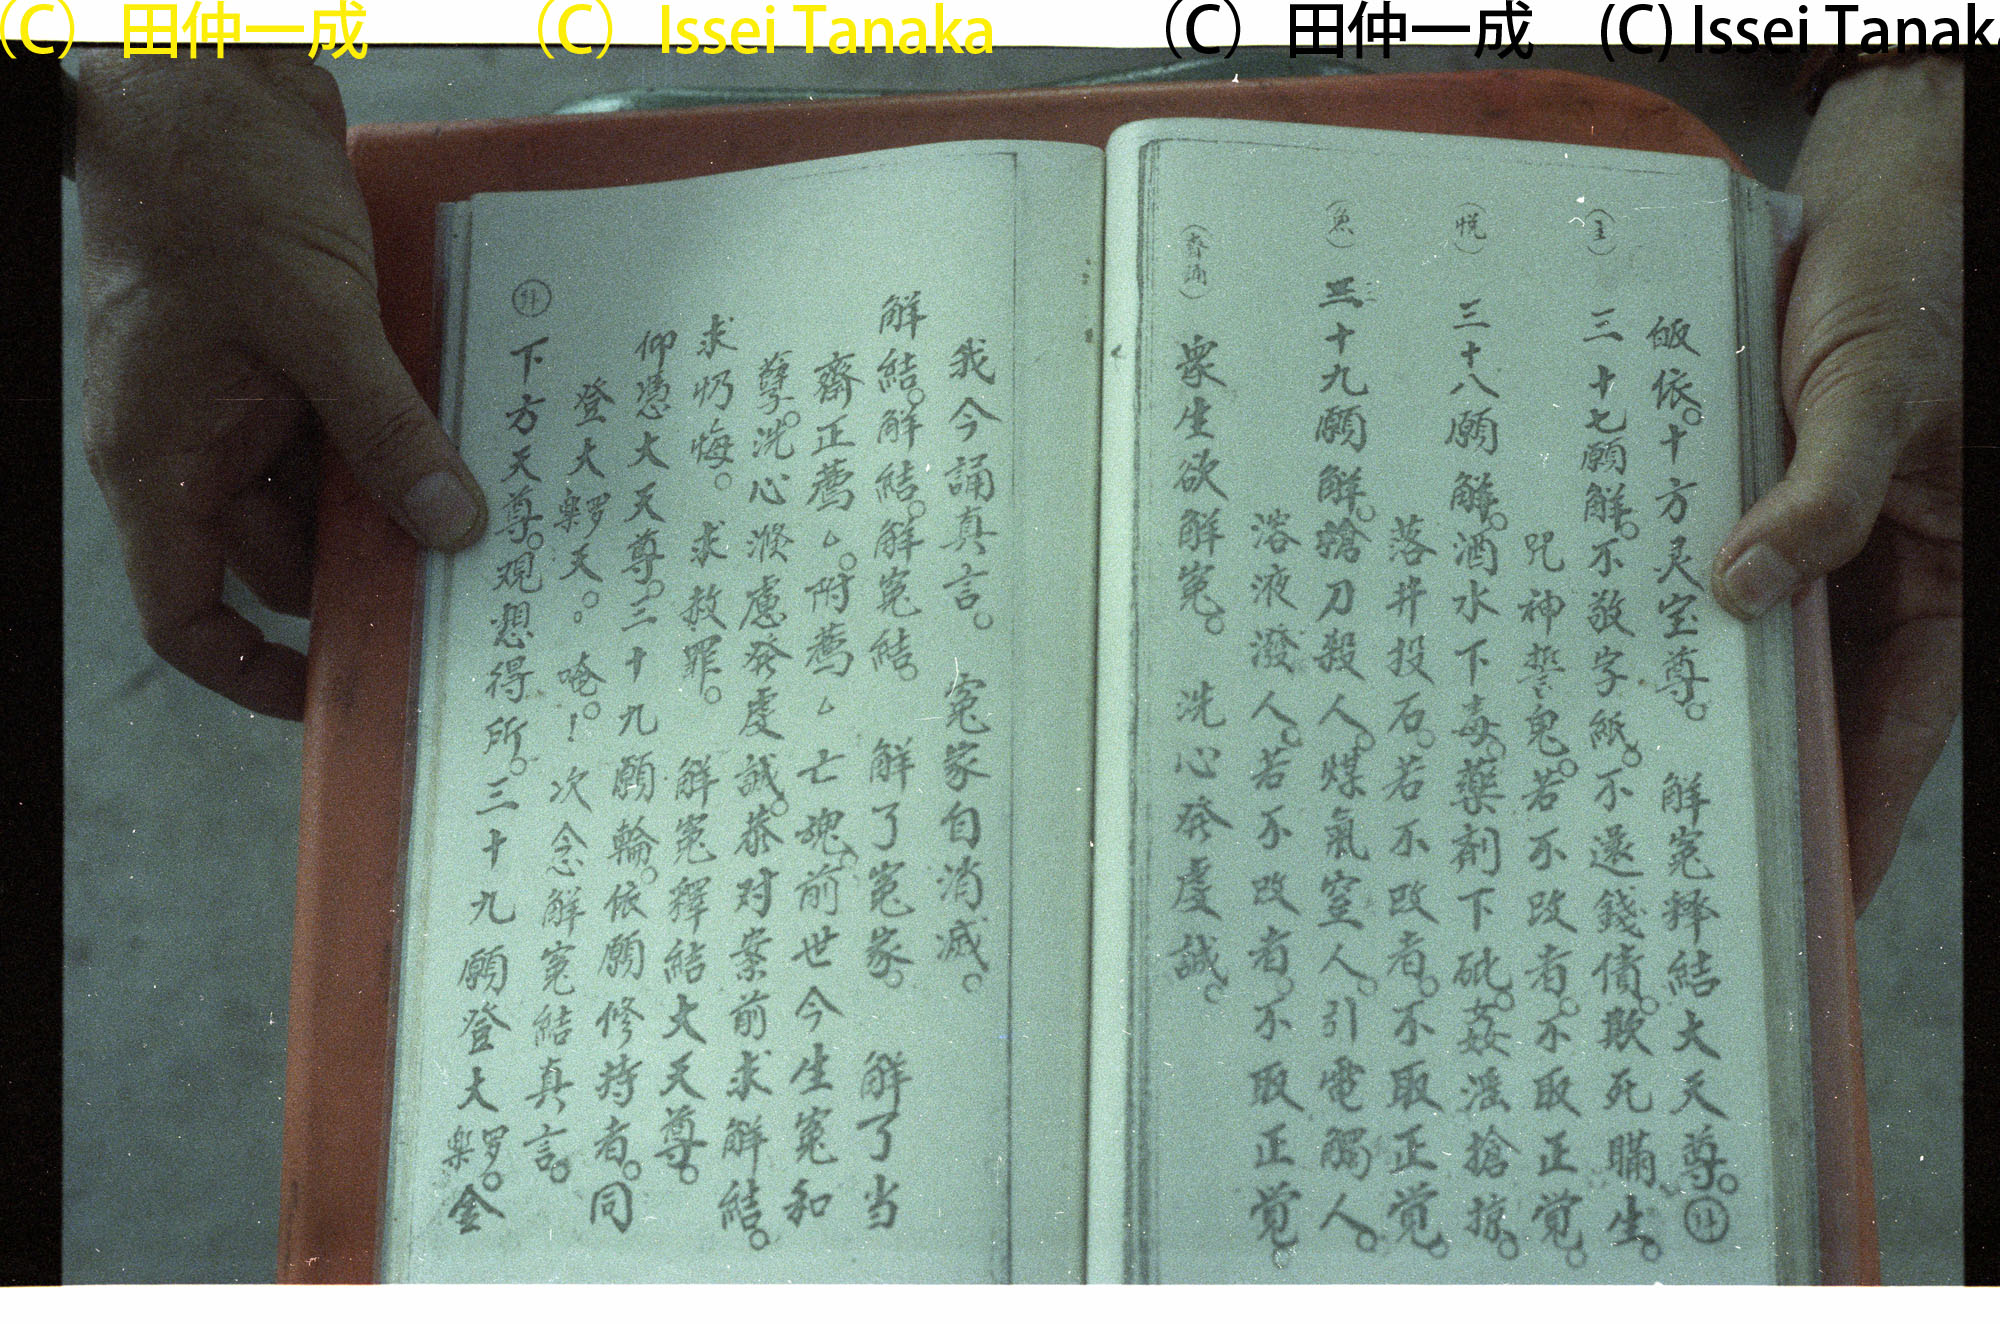 (C) 田仲一成 (C) Issei Tanaka (C) 田仲一成 (C) Issei Tanaka
皈依。十方灵宝尊。 解冤释結大天尊。
(主) 三十七願解。不敬字紙。不還錢債。欺死瞞生。
咒神誓鬼。若不改者。不取正覚。
(悦) 三十八願解。酒水下毒。藥剤下砒。姦淫搶掠。
落井投石。若不改者。不取正覚。
(魚) 三十九願解。搶刀殺人。煤氣窒人。引電觸人。
溶液潑人。若不改者。不取正覚。
(齊誦) 衆生欲解冤。 洗心発虔誠。
我今誦真言。 冤家自消滅。
解結。解結。解冤結。 解了冤家。 解了当
齋正薦厶。附薦厶亡魂。前世今生冤和
孽。洗心滌慮発虔誠。恭对案前求解結。
求忏悔。求赦罪。 解冤釋結大天尊。
仰憑大天尊。三十九願輪。依願修持者。同
登大羅天。。唵。！次念解冤結真言。
下方天尊。观想得所。三十九願登大羅。金